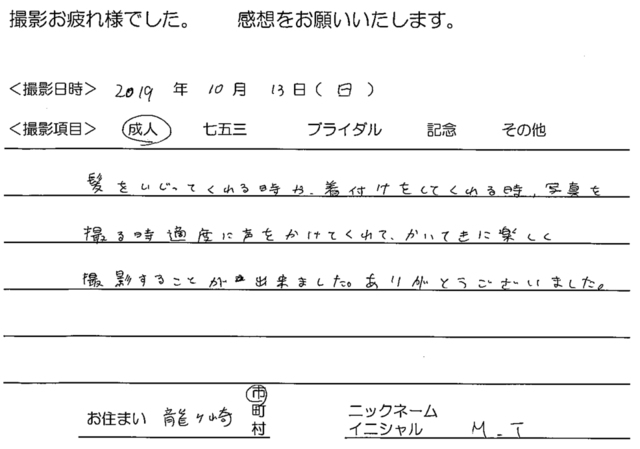 撮影お疲れ様でした。 感想をお願いいたします。
＜撮影日時＞ 2019 年 10 月 13 日（ 日 ）
＜撮影項目＞ 成人 七五三 ブライダル 記念 その他
髪をいじってくれる時や、着付けをしてくれる時、写真を
撮る時適度に声をかけてくれて、かいてきに楽しく
撮影することが出来ました。ありがとうございました。
お住まい 龍ヶ崎 市 町 村
ニックネーム
イニシャル M.T